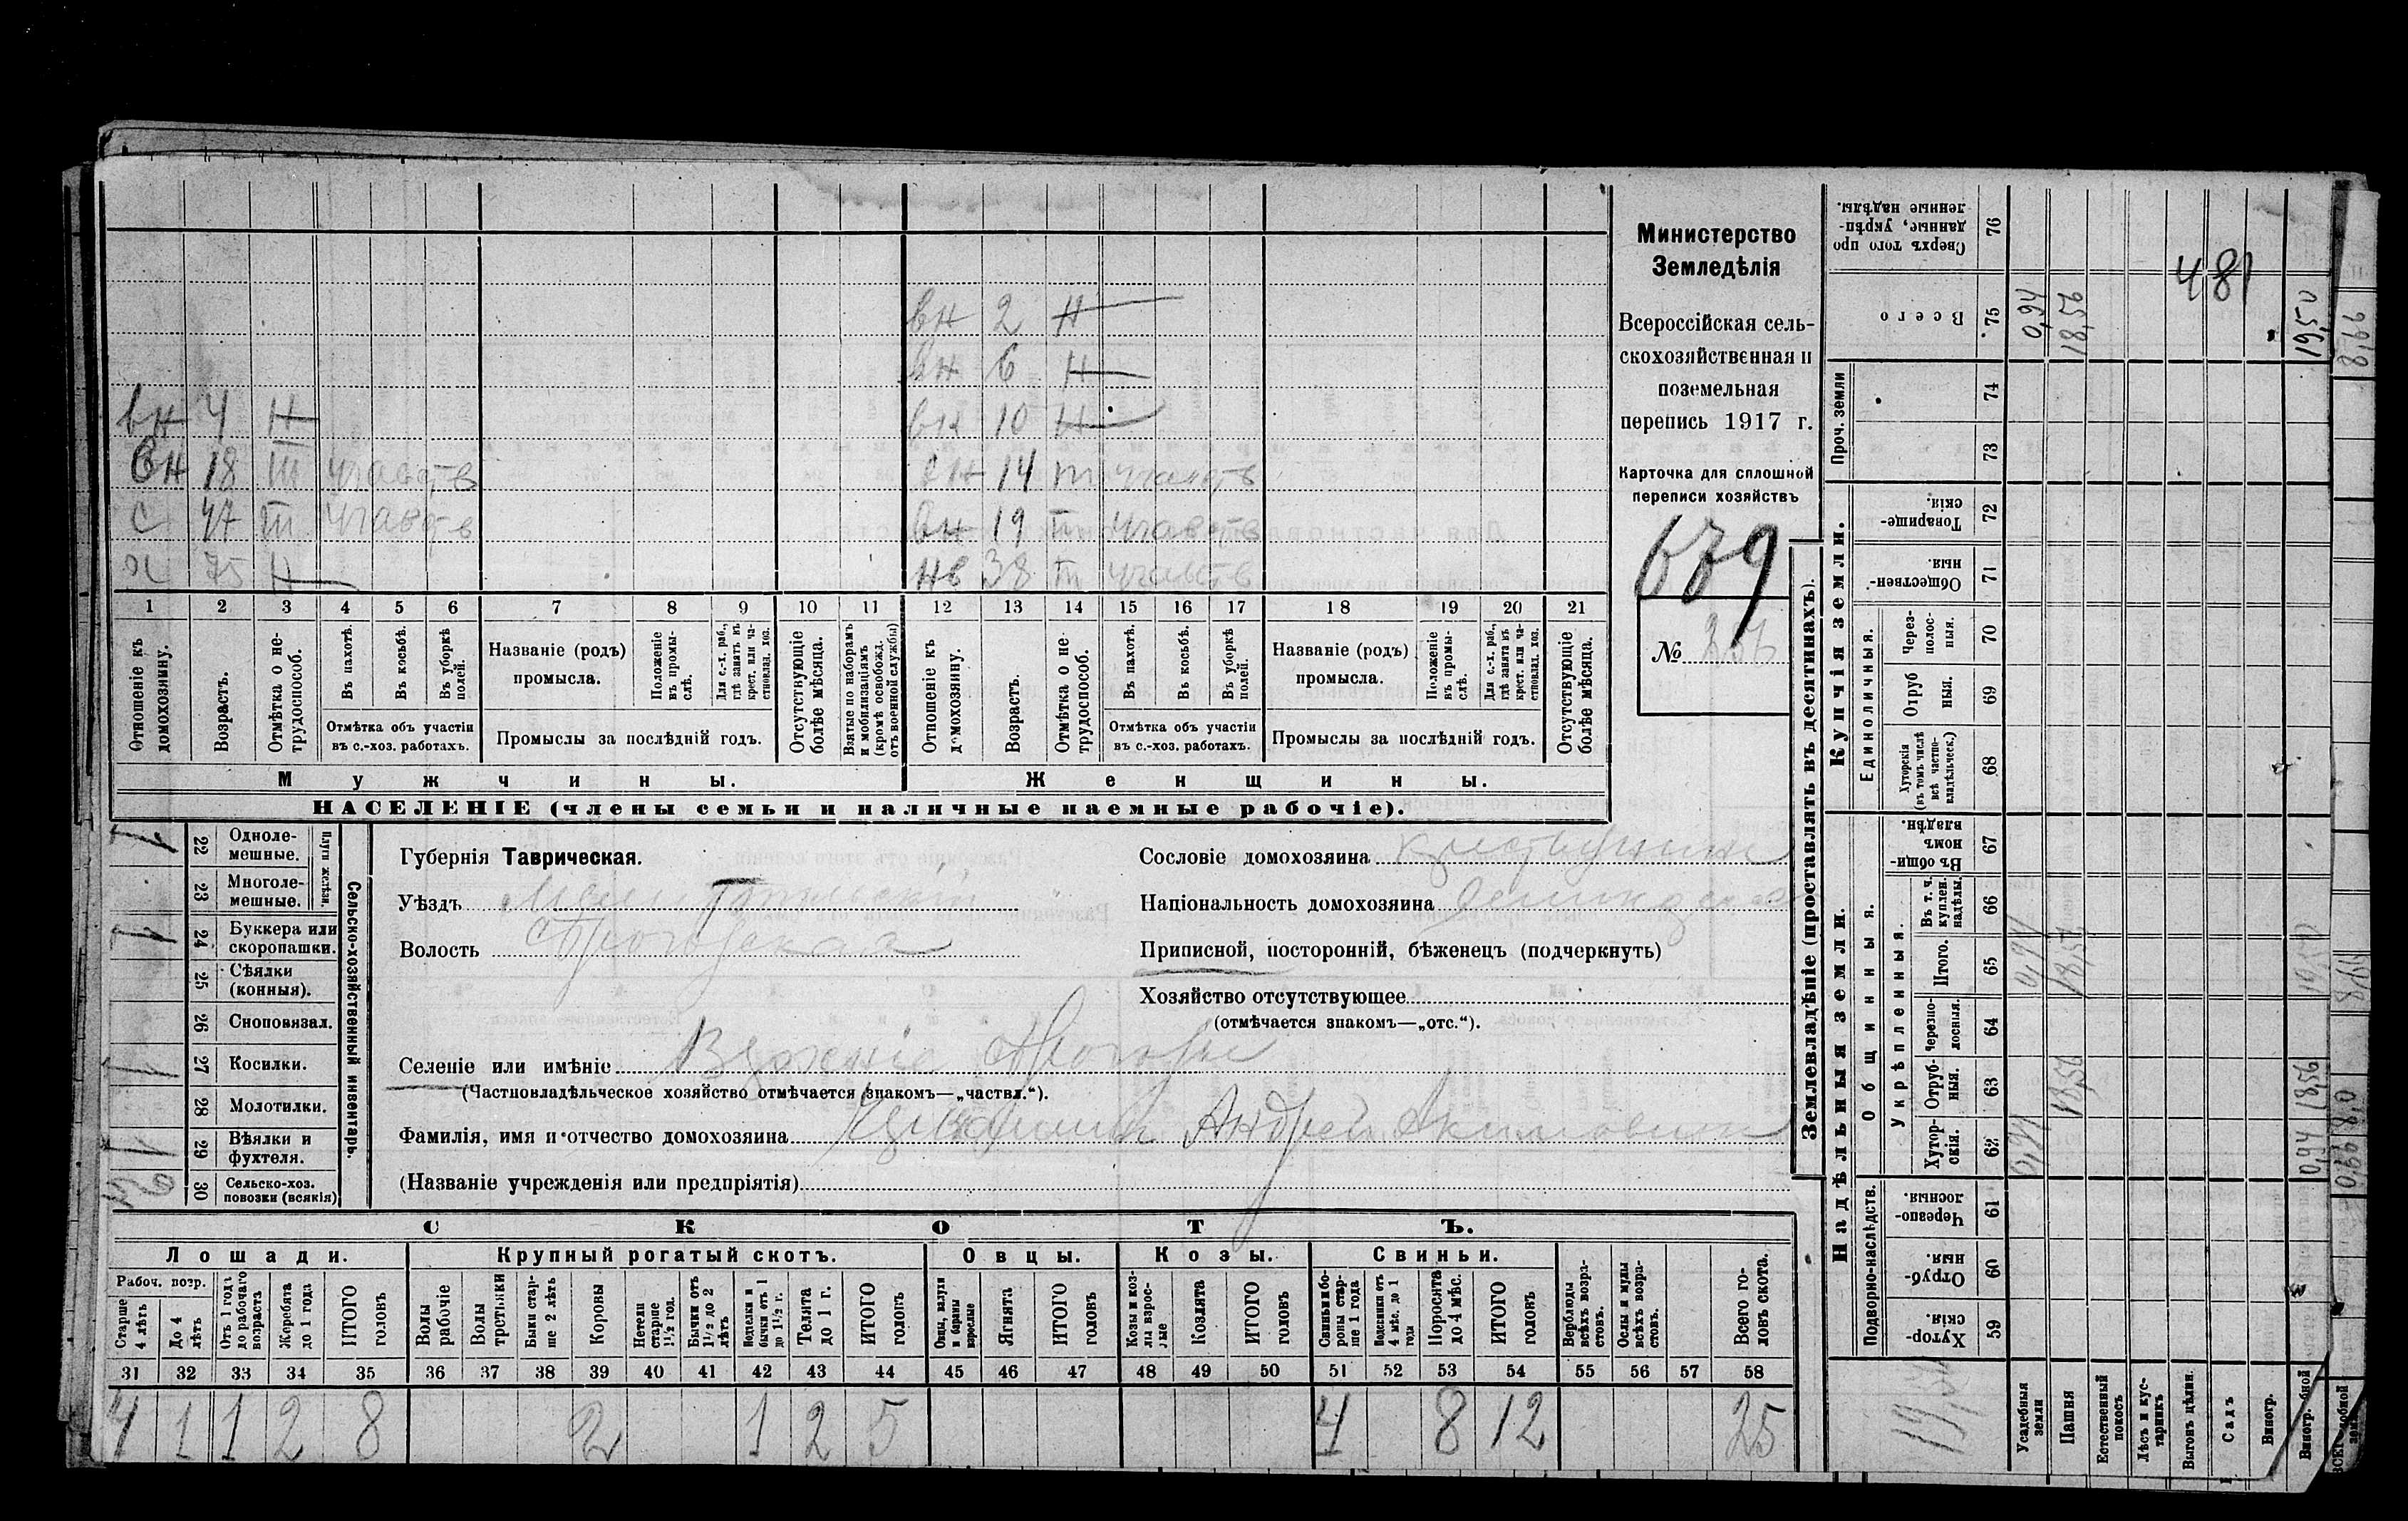 вн 2 н
вн 6 н
вн 4 н вн 10 н
вн 18 т участв вн 14 т участв
с 47 т участв вн 19 т участв
н нв 38 т участв
1 2 3 4 5 6 7 8 9 10 11 12 13 14 15 16 17 18 19 20 21
Отношеніе къ домохозяину.
Возрастъ.
Отмѣтка о нетрудоспособ.
Въ пахотѣ.
Въ косьбѣ.
Въ уборкѣ полей.
Отмѣтка объ участіи
въ с.-хоз. работахъ.
Названіе (родъ)
промысла.
Положеніе въ промыслѣ.
Для с.-х. раб., гдѣ занятъ въ крест. или частновлад. хоз.
Промыслы за послѣдній годъ.
Отсутствующіе болѣе мѣсяца.
Взятые по наборамъ и мобилизаціямъ (кромѣ освобожд. отъ военной службы)
Отношеніе къ домохозяину.
Возрастъ.
Отмѣтка о нетрудоспособ.
Въ пахотѣ.
Въ косьбѣ.
Въ уборкѣ полей.
Отмѣтка объ участіи
въ с.-хоз. работахъ.
Названіе (родъ)
промысла.
Положеніе въ промыслѣ.
Для с.-х. раб., гдѣ занята въ крест. или частновлад. хоз.
Промыслы за послѣдній годъ.
Отсутствующіе болѣе мѣсяца.
Мужчины. Женщины.
НАСЕЛЕНІЕ (члены семьи и наличные наемные рабочіе).
Министерство
Земледѣлія
Всероссійская сель-
скохозяйственная и
поземельная
перепись 1917 г.
Карточка для сплошной
переписи хозяйствъ
679
№
1 22 Одноле-
мешные.
23 Многоле-
мешные.
Плуги желѣзн.
1 24 Буккера или
скоропашки.
25 Сѣялки
(конныя).
26 Сноповязал.
1 27 Косилки.
28 Молотилки.
1 29 Вѣялки и
фухтеля.
30 Сельско-хоз.
повозки (всякія)
Сельско-хозяйственный инвентарь.
Губернія Таврическая.
Уѣздъ Мелитопольскій
Волость
Селеніе или имѣніе
(Частновладѣльческое хозяйство отмѣчается знакомъ—„частвл.“).
Фамилія, имя и отчество домохозяина Андрей Акимовичъ
(Названіе учрежденія или предпріятія)
Сословіе домохозяина крестьянинъ
Національность домохозяина
Приписной, посторонній, бѣженецъ (подчеркнуть)
Хозяйство отсутствующее
(отмѣчается знакомъ—„отс.“).
СКОТЪ.
Лошади. Крупный рогатый скотъ. Овцы. Козы. Свиньи.
Рабоч. возр.
Старше 4 лѣтъ
До 4 лѣтъ
Отъ 1 года до рабочаго возраста
Жеребята до 1 года
ИТОГО головъ
Волы рабочіе
Волы третьяки
Быки старше 2 лѣтъ
Коровы
Нетели старше 1½ год.
Бычки отъ 1½ до 2 лѣтъ
Подтелки и бычки отъ 1 до 1½ г.
Телята до 1 г.
ИТОГО головъ
Овцы, валухи и бараны взрослые
Ягнята
ИТОГО головъ
Козы и козлы взрослые
Козлята
ИТОГО головъ
Свиньи боровы старше 1 года
Подсвинки отъ 4 мѣс. до 1 года
Поросята до 4 мѣс.
ИТОГО головъ
Верблюды всѣхъ возрастовъ.
Ослы и мулы всѣхъ возрастовъ.
Всего головъ скота.
31 32 33 34 35 36 37 38 39 40 41 42 43 44 45 46 47 48 49 50 51 52 53 54 55 56 57 58
4 1 1 2 8 2 1 2 5 4 8 12 25
Землевладѣніе (проставлять въ десятинахъ).
Надѣльныя земли. Купчія земли. Проч. земли
Подворно-наслѣдств. Общинныя. Укрѣпленныя. Единоличныя.
Хуторскія. 59
Отрубныя. 60
Черезполосныя. 61
Хуторскія. 62
Отрубныя. 63
Черезполосныя. 64
Итого. 65
Въ т. ч. куплен. надѣлы. 66
Въ общинномъ владѣн. 67
Хуторскія (въ томъ числѣ всѣ частновладѣльческ.) 68
Отрубныя. 69
Черезполосныя. 70
Общественныя. 71
Товарищескія. 72
73
74
Всего 75
Сверхъ того проданные, укрѣпленные надѣлы. 76
Усадебныя земли 0,94 0,94 0,94
Пашня 18,56 18,56 18,56
Естественный покосъ
Лѣсъ и кустарникъ
Выгонъ цѣлин.
Садъ
Виногр.
481
0,94 18,56 19,50 19,50